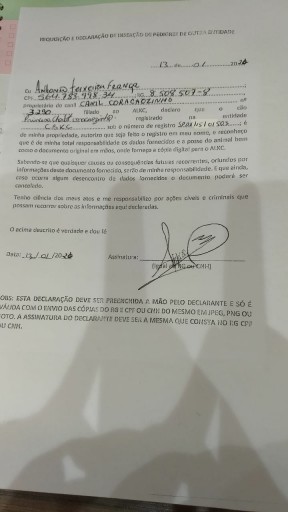 REQUISIÇÃO E DECLARAÇÃO DE ISENÇÃO DE PEDIGREE DE OUTRA ENTIDADE
13 01
Eu Antonio Ferreira França
CPF RG 8 508 507-8
proprietário do canil CANIL CORAÇÃOZINHO nº
3290 filiado ao ALKC, declaro que o cão
registrado na entidade
CBKC sob o número de registro é
de minha propriedade, autorizo que seja feito o registro em meu nome, e reconheço
que é de minha total responsabilidade os dados fornecidos e a posse do animal bem
como o documento original em mãos, onde forneço a cópia digital para o ALKC.
Saliento-se que quaisquer causas ou consequências futuras recorrentes, oriundas por
informações deste documento fornecido, serão de minha responsabilidade. E que ainda,
caso ocorra algum desencontro de dados fornecidos o documento poderá ser
cancelado.
Tenho ciência dos meus atos e me responsabilizo por ações cíveis e criminais que
possam recorrer sobre as informações aqui declaradas.
O acima descrito é verdade e dou fé
Data: 13/01/ Assinatura:
(igual do RG ou CNH)
OBS: ESTA DECLARAÇÃO DEVE SER PREENCHIDA A MÃO PELO DECLARANTE E SÓ É
VÁLIDA COM O ENVIO DAS CÓPIAS DO RG E CPF OU CNH DO MESMO EM JPEG, PNG OU
FOTO. A ASSINATURA DO DECLARANTE DEVE SER A MESMA QUE CONSTA NO RG CPF
OU CNH.